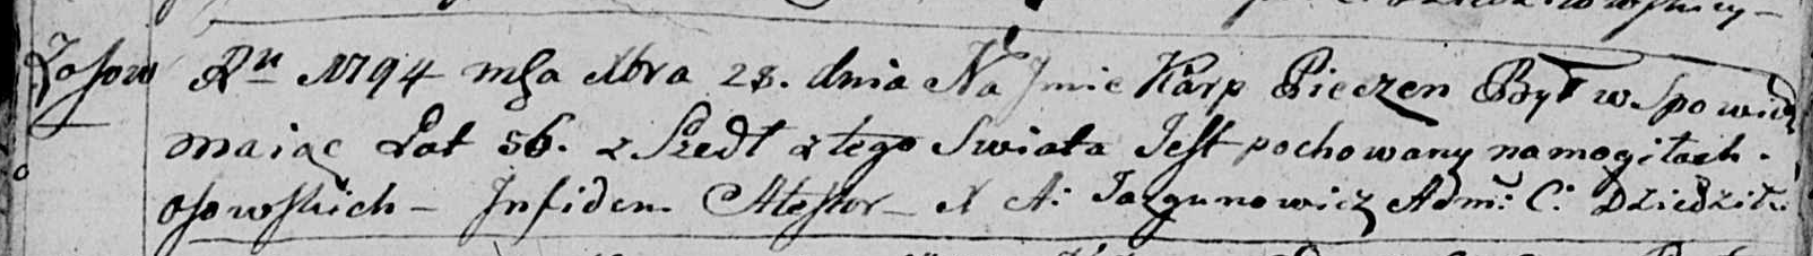 Zosow Rn 1794 msa Xbra 28. dnia Na Jmie Karp Pieczen Był w Spowied
maiąc Lat 56. z Szedł z tego Swiata Jest pochowany na mogiłach.
osowskich – Infidem Attestor – X A: Jazgunowicz Adm: C: Dziedziłº